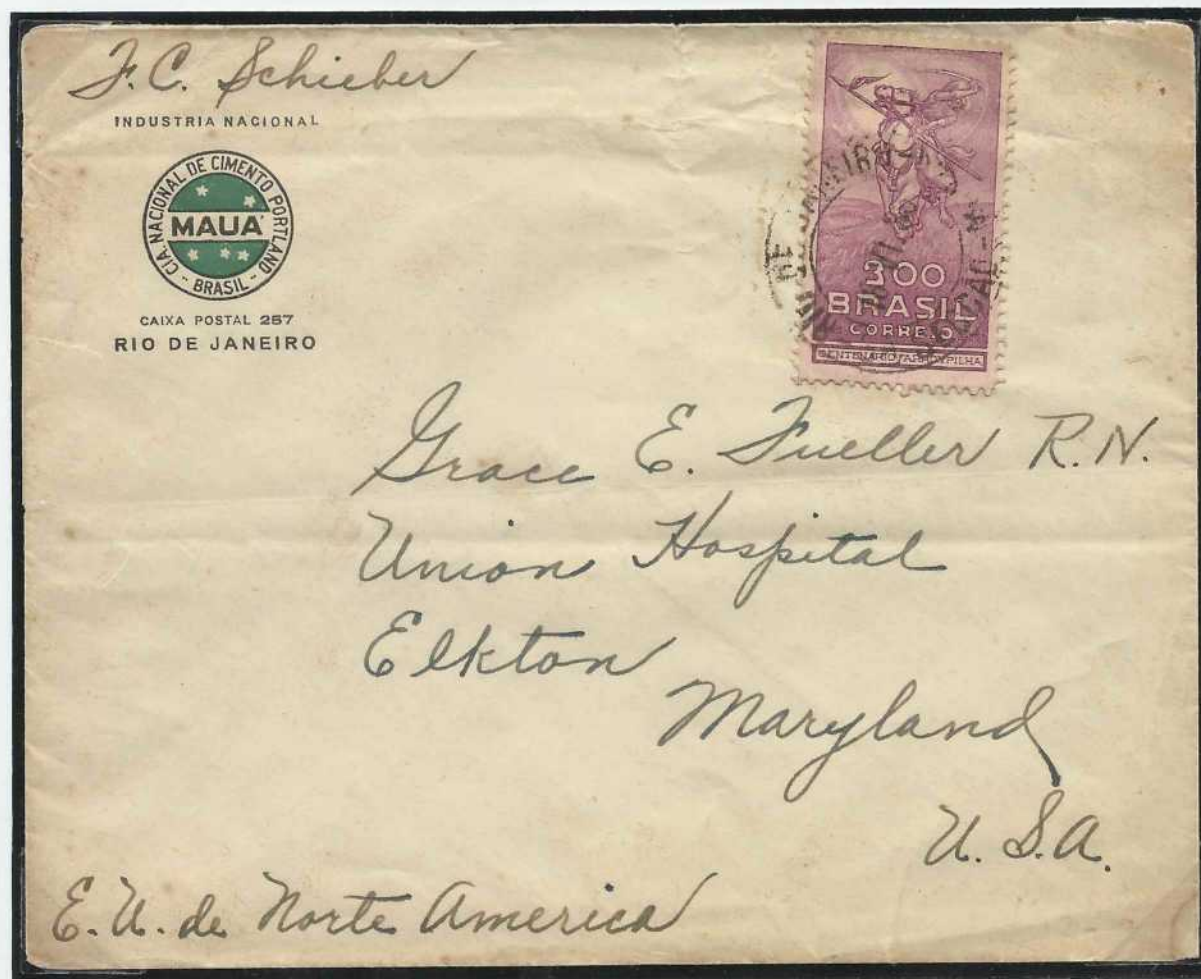 F. C. Schieber
INDUSTRIA NACIONAL
CIA. NACIONAL DE CIMENTO PORTLAND
MAUÁ
- BRASIL -
CAIXA POSTAL 257
RIO DE JANEIRO
300
BRASIL
CORREIO
CENTENARIO FARROUPILHA
DE JANEIRO
Grace E. Fueller R.N.
Union Hospital
Elkton
Maryland
U. S. A.
E. U. de Norte America